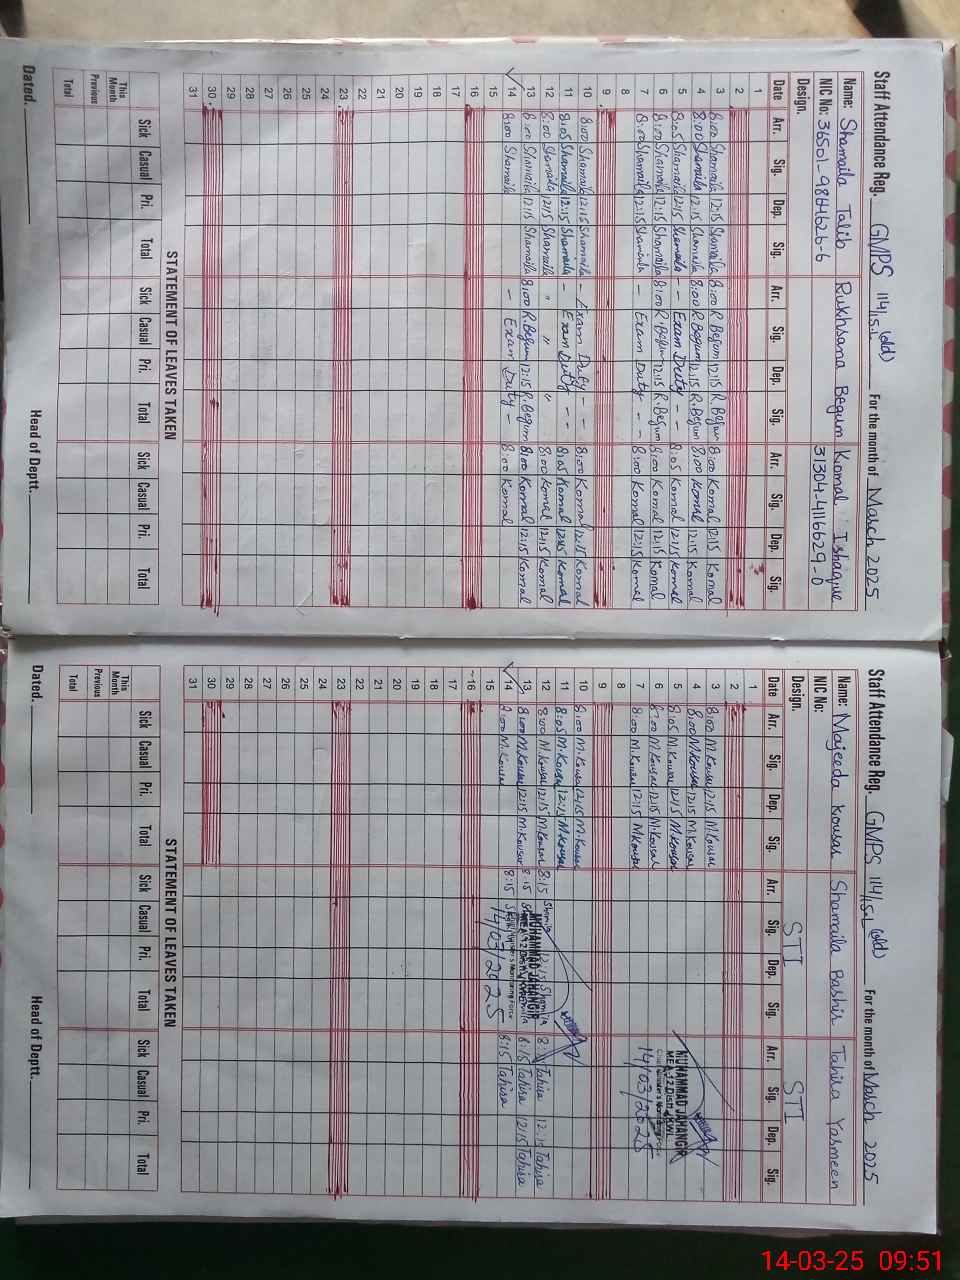 Staff Attendance Reg. GMPS 114/15.L (old) For the month of March 2025
Name: Shamaila Talib Rukhsana Begum Komal Ishaque
NIC No: 36501-9864626-6 31304-4116629-0
Design.
Date Arr. Sig. Dep. Sig. Arr. Sig. Dep. Sig. Arr. Sig. Dep. Sig.
1
2
3 8:00 Shamaila 12:15 Shamaila 8:00 R.Begum 12:15 R.Begum 8:00 Komal 12:15 Komal
4 8:00 Shamaila 12:15 Shamaila 8:00 R.Begum 12:15 R.Begum 8:00 Komal 12:15 Komal
5 8:05 Shamaila 12:15 Shamaila - - Exam Duty - - 8:05 Komal 12:15 Komal
6 8:00 Shamaila 12:15 Shamaila 8:00 R.Begum 12:15 R.Begum 8:00 Komal 12:15 Komal
7 8:00 Shamaila 12:15 Shamaila - Exam Duty - - 8:00 Komal 12:15 Komal
8
9
10 8:00 Shamaila 12:15 Shamaila - Exam Duty - - 8:00 Komal 12:15 Komal
11 8:05 Shamaila 12:15 Shamaila - Exam Duty - - 8:05 Komal 12:15 Komal
12 8:00 Shamaila 12:15 Shamaila " " " 8:00 Komal 12:15 Komal
13 8:00 Shamaila 12:15 Shamaila 8:00 R.Begum 12:15 R.Begum 8:00 Komal 12:15 Komal
14 8:00 Shamaila - Exam Duty - 8:00 Komal
15
16
17
18
19
20
21
22
23
24
25
26
27
28
29
30
31
STATEMENT OF LEAVES TAKEN
Sick Casual Pri. Total Sick Casual Pri. Total Sick Casual Pri. Total
This Month
Previous
Total
Dated. Head of Deptt.
Staff Attendance Reg. GMPS 114/15.L (old) For the month of March 2025
Name: Majeeda Kousar Shamaila Bashir Tahira Yasmeen
NIC No:
Design. STI STI
Date Arr. Sig. Dep. Sig. Arr. Sig. Dep. Sig. Arr. Sig. Dep. Sig.
1
2
3 8:00 M.Kousar 12:15 M.Kousar
4 8:00 M.Kousar 12:15 M.Kousar
5 8:05 M.Kousar 12:15 M.Kousar
6 8:00 M.Kousar 12:15 M.Kousar
7 8:00 M.Kousar 12:15 M.Kousar
MUHAMMAD JAHANGIR
14/03/2025
8
9
10 8:00 M.Kousar 12:15 M.Kousar
11 8:05 M.Kousar 12:15 M.Kousar
12 8:00 M.Kousar 12:15 M.Kousar 8:15 12:15 Shamila Tahira 12:15 Tahira
13 8:00 M.Kousar 12:15 M.Kousar 8:15 8:15 Tahira 12:15 Tahira
14 8:00 M.Kousar 8:15 8:15 Tahira
MUHAMMAD JAHANGIR
Chief Minister's Monitoring Force
14/03/2025
15
16
17
18
19
20
21
22
23
24
25
26
27
28
29
30
31
STATEMENT OF LEAVES TAKEN
Sick Casual Pri. Total Sick Casual Pri. Total Sick Casual Pri. Total
This Month
Previous
Total
Dated. Head of Deptt.
14-03-25 09:51